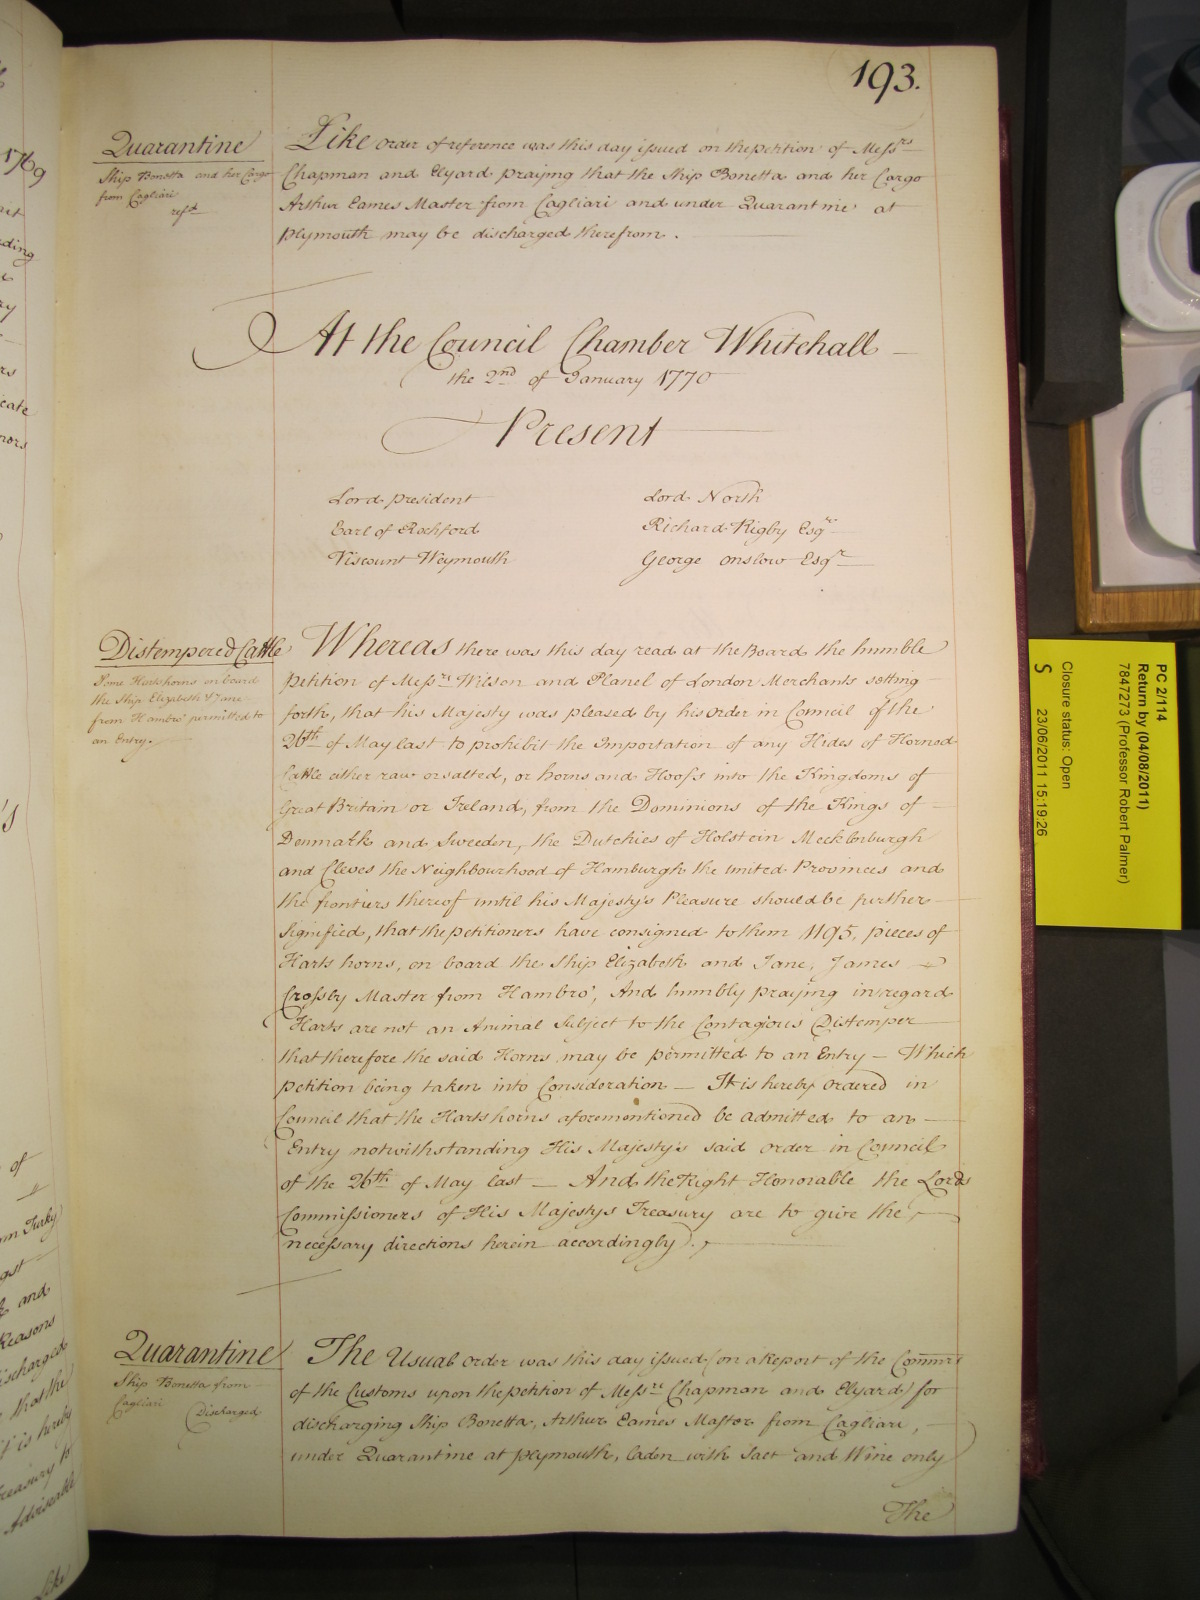 193.
Quarantine
Ship Bonetta and her Cargo
from Cagliari
refd
Like order of reference was this day issued on the petition of Messrs
Chapman and Elyard praying that the Ship Bonetta and her Cargo
Arthur Eames Master from Cagliari and under Quarantine at
Plymouth may be discharged therefrom.
At the Council Chamber Whitehall
the 2nd of January 1770
Present
Lord President
Earl of Rochford
Viscount Weymouth
Lord North
Richard Rigby Esqr
George Onslow Esqr
Distempered Cattle
Some Hartshorns on board
the Ship Elizabeth & Jane
from Hambro' permitted to
an Entry.
Whereas there was this day read at the Board the humble
Petition of Messrs Wilson and Planel of London Merchants setting
forth, that his Majesty was pleased by his Order in Council of the
26th of May last to prohibit the Importation of any Hides of Horned
Cattle either raw or salted, or horns and Hoofs into the Kingdoms of
Great Britain or Ireland, from the Dominions of the Kings of
Denmark and Sweeden, the Dutchies of Holstein Mecklenburgh
and Cleves the Neighbourhood of Hamburgh the united Provinces and
the frontiers thereof until his Majesty's Pleasure should be further
Signified, that the petitioners have consigned to them 1195, pieces of
Harts horns, on board the Ship Elizabeth and Jane, James
Crossby Master from Hambro', And humbly praying in regard
Harts are not an Animal Subject to the Contagious Distemper
that therefore the said Horns may be permitted to an Entry — Which
petition being taken into Consideration — It is hereby ordered in
Council that the Harts horns aforementioned be admitted to an
Entry notwithstanding His Majesty's said order in Council
of the 26th of May last — And the Right Honorable the Lords
Commissioners of His Majestys Treasury are to give the
necessary directions herein accordingly.
Quarantine
Ship Bonetta from
Cagliari
Discharged
The Usual order was this day issued (on a Report of the Commrs
of the Customs upon the petition of Messrs Chapman and Elyard) for
discharging Ship Bonetta, Arthur Eames Master from Cagliari,
under Quarantine at Plymouth, laden with Salt and Wine only
The
1769
ding
cate
of
om Turky
and
Reasons
discharged
that the
it is hereby
Treasury to
Adviseable
Like
PC 2/114
Return by (04/08/2011)
7847273 (Professor Robert Palmer)
Closure status: Open
S 23/06/2011 15:19:26